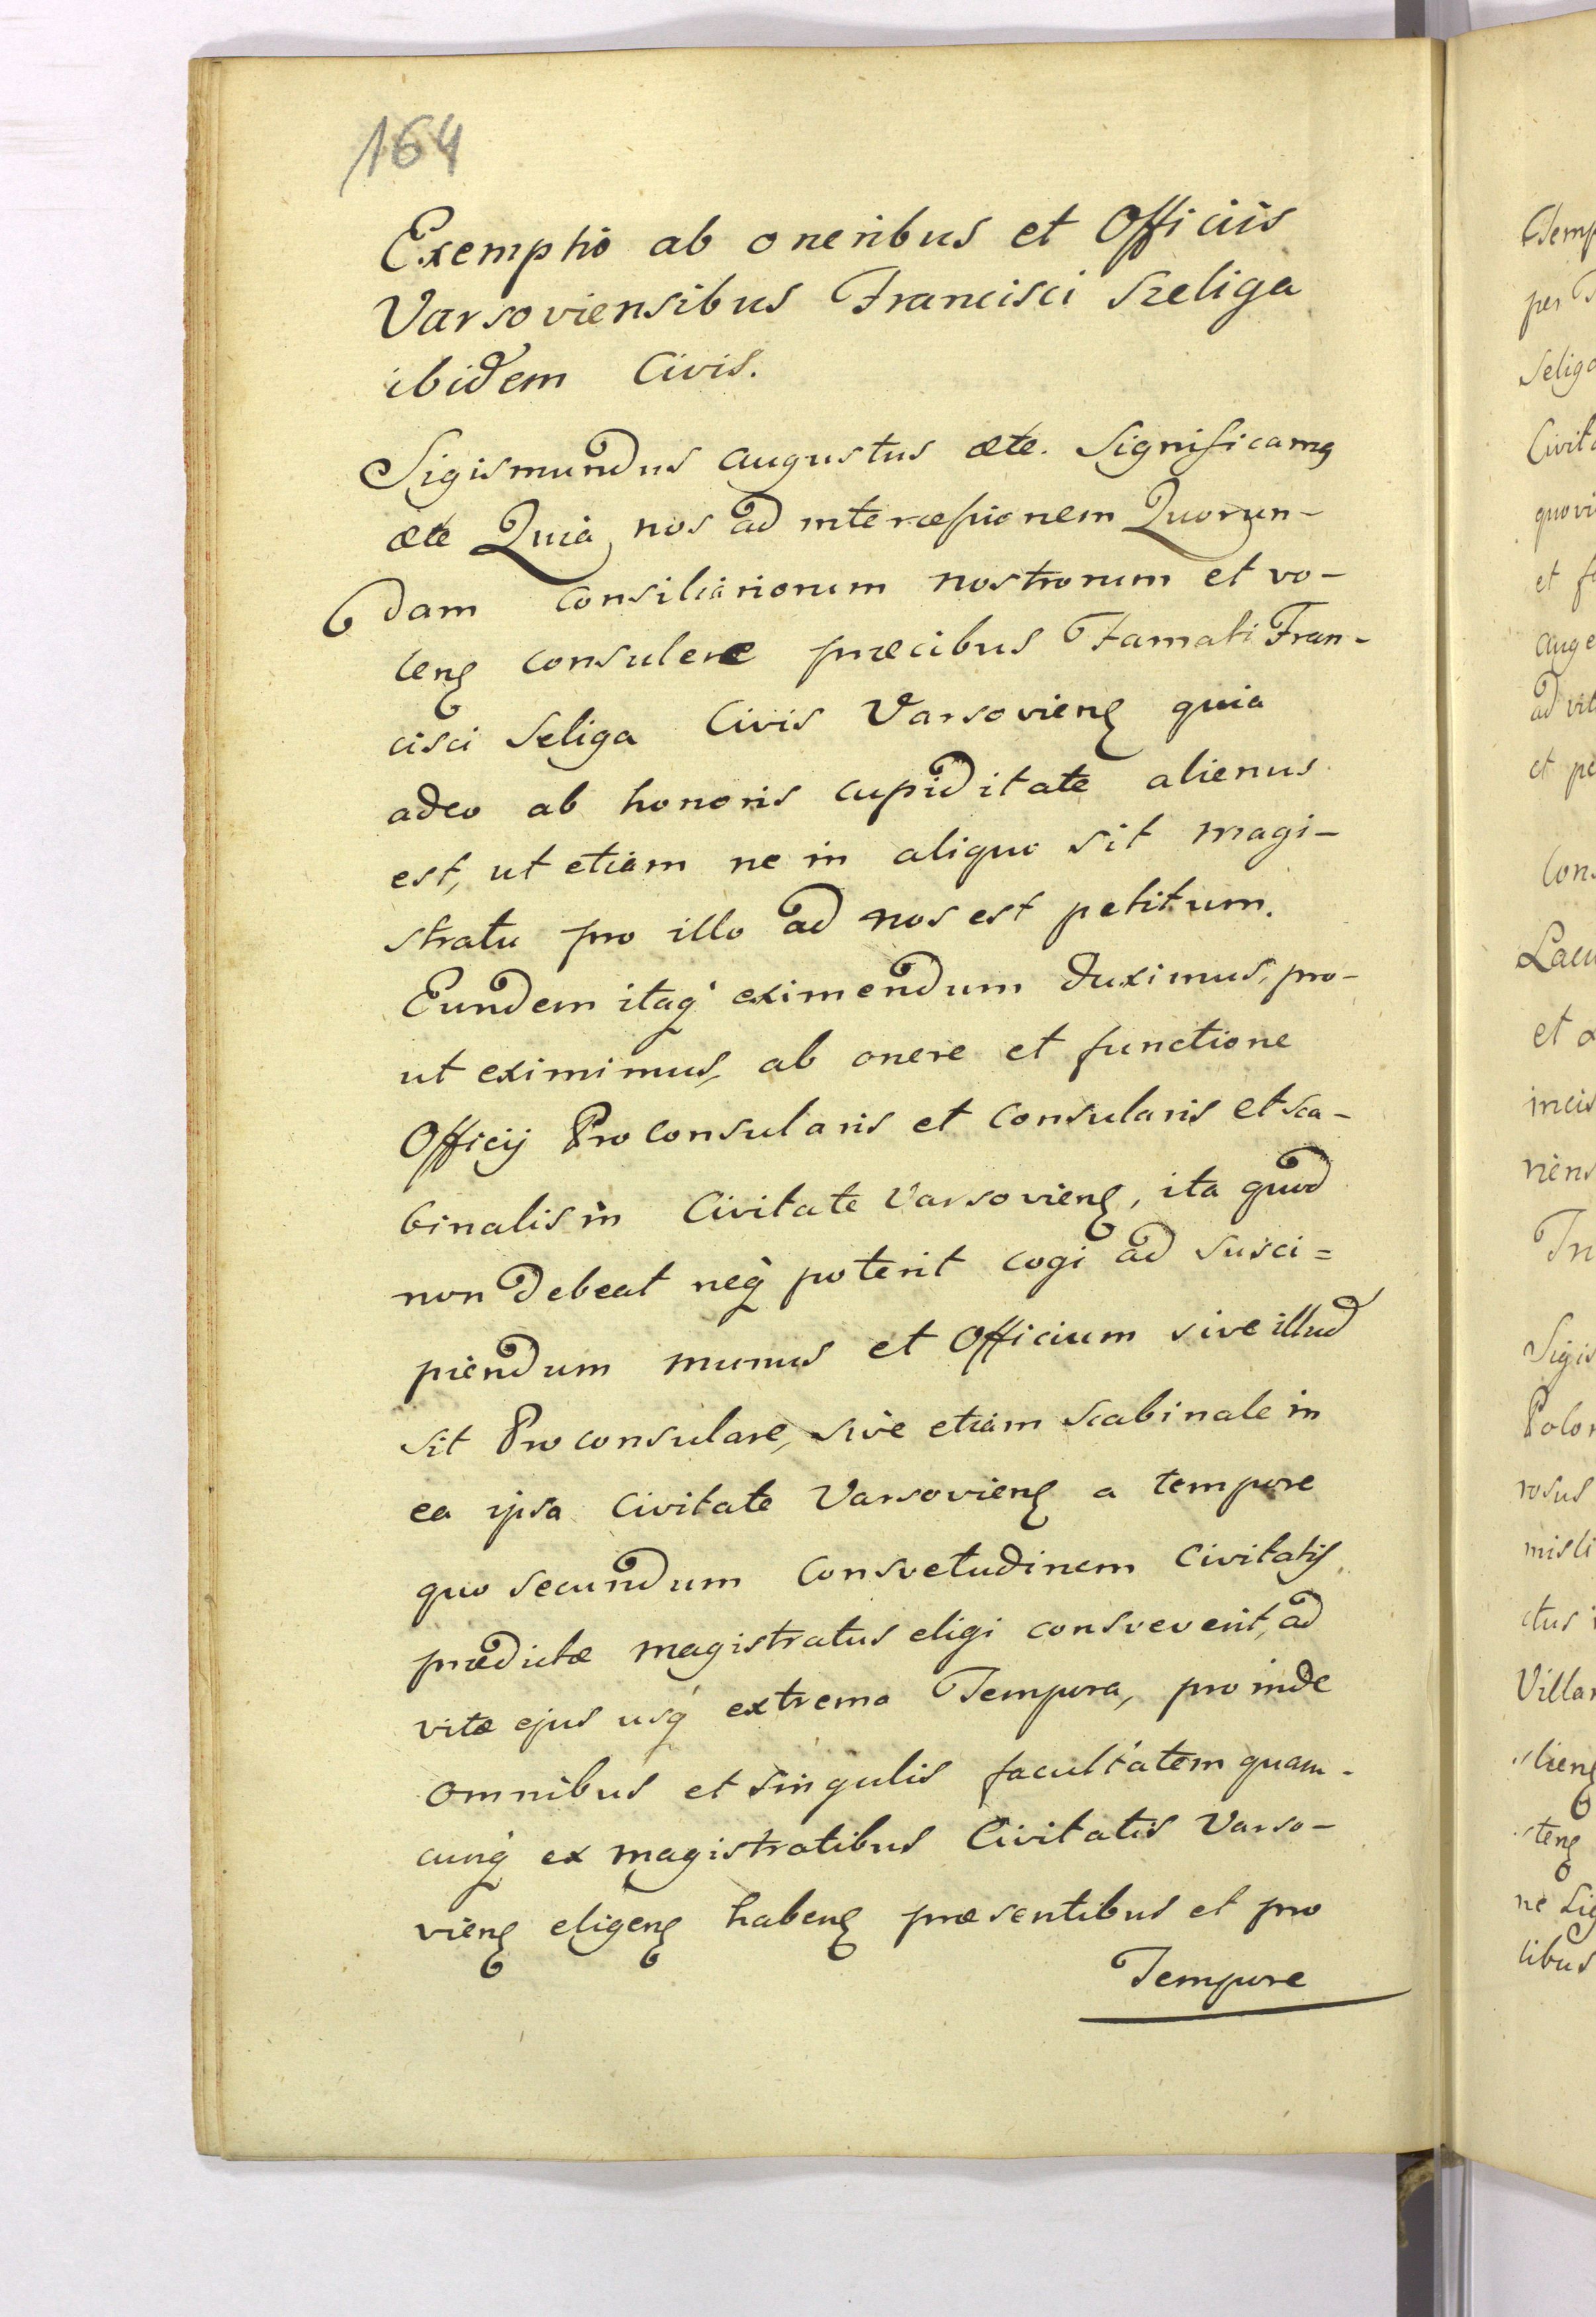 164
Exemptio ab oneribus et Officiis
Varsoviensibus Francisci Szeliga
ibidem Civis.
Sigismundus Augustus ætc. Significamꝰ
ætc Quia nos ad intercessionem Quorun-
dam Consiliariorum nostrorum et vo-
lenꝭ consulere præcibus Famati Fran-
cisci Seliga Civis Varsovienꝭ quia
adeo ab honoris cupiditate alienus
est, ut etiam ne in aliquo sit magi-
stratu pro illo ad nos est petitum.
Eundem itaq́ eximendum duximus, pro-
ut eximimus, ab onere et functione
Officij Proconsularis et Consularis et Sca-
binalis in Civitate Varsovienꝭ, ita quod
non debeat neq́ poterit cogi ad susci=
piendum munus et Officium sive illud
sit Proconsulare, sive etiam Scabinale in
ea ipsa Civitate Varsovienꝭ a tempore
quo secundum Consvetudinem Civitatis
prædictæ magistratus eligi consveverit, ad
vitæ ejus usq́ extrema Tempora, proinde
omnibus et singulis facultatem quam-
cunq́ ex magistratibus Civitatis Varso-
vienꝭ eligenꝭ habenꝭ præsentibus et pro
Tempore
Seliga
quovi
et
auge
ad vet
et
Cons
et
incis
riens
In
Sigis
Polon
rosus
misli
ctus
Villar
stienꝭ
stenꝭ
ne Sig
libus